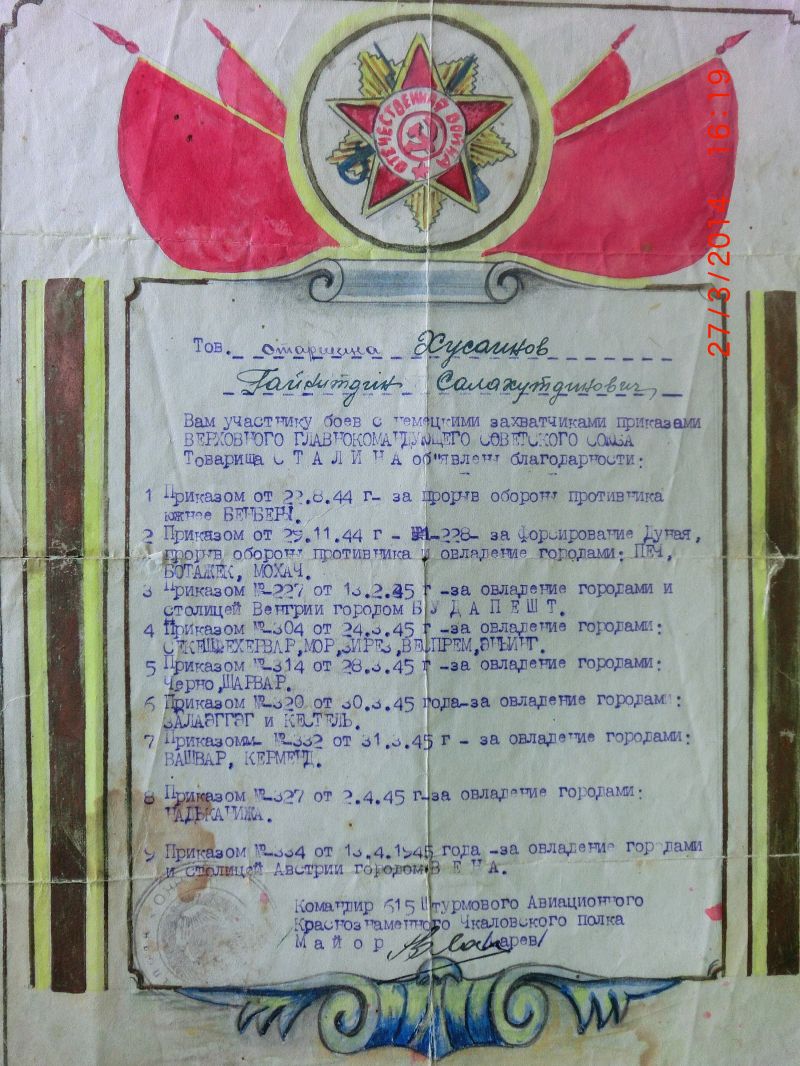 ОТЕЧЕСТВЕННАЯ ВОЙНА
27/3/2014 16:19
Тов. старшина Хусаинов
Салахутдинович
Вам участнику боев с немецкими захватчиками приказами
ВЕРХОВНОГО ГЛАВНОКОМАНДУЮЩЕГО СОВЕТСКОГО СОЮЗА
Товарища С Т А Л И Н А об"явлены благодарности:
1 Приказом от 22.8.44 г- за прорыв обороны противника
южнее БЕНДЕРЫ.
2 Приказом от 29.11.44 г - №-228- за форсирование Дуная,
прорыв обороны противника и овладение городами: ПЕЧ,
БОТАЖЕК, МОХАЧ.
3 Приказом №-227 от 13.2.45 г -за овладение городами и
столицей Венгрии городом Б У Д А П Е Ш Т.
4 Приказом №-304 от 24.3.45 г -за овладение городами:
СЕКЕШФЕХЕРВАР,МОР,ЗИРЕЗ,ВЕСПРЕМ,ЭНЬИНГ.
5 Приказом №-314 от 28.3.45 г -за овладение городами:
Черно,ШАРВАР.
6 Приказом №-320 от 30.3.45 года-за овладение городами:
ЗАЛАЭГГЭГ и КЕСТЕЛЬ.
7 Приказом №-332 от 31.3.45 г - за овладение городами:
ВАШВАР, КЕРМЕНД.
8 Приказом №-327 от 2.4.45 г-за овладение городами:
НАДЬКАНИЖА.
9 Приказом №-334 от 13.4.1945 года -за овладение городами
и столицей Австрии городом В Е Н А.
Командир 615 Штурмового Авиационного
Краснознаменного Чкаловского полка
М а й о р